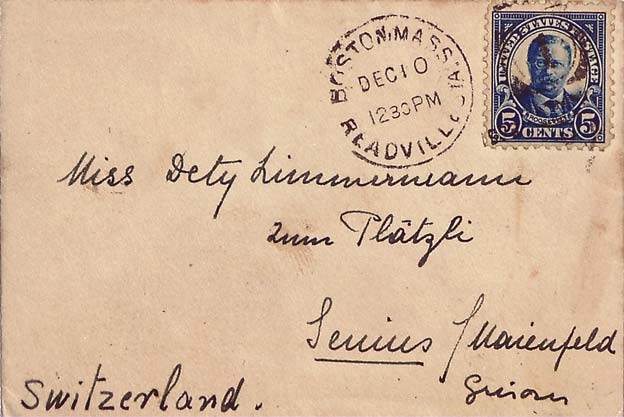 BOSTON, MASS.
DEC 10
12 30 PM
READVILLE STA.
UNITED STATES POSTAGE
ROOSEVELT
5 CENTS 5
Miss Dety Zimmermann
zum Plätzli
Jenins / Maienfeld
Switzerland.